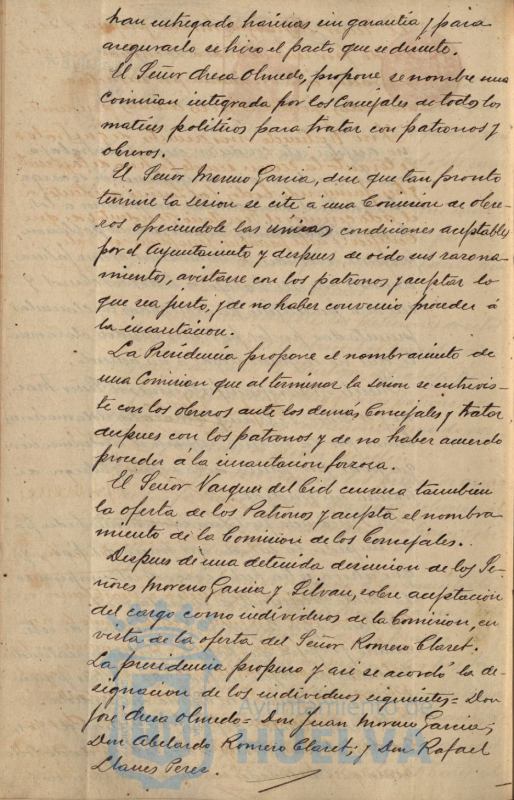 han entregado harinas sin garantía y para
asegurarlo se hizo el pacto que se discute.
El Señor Checa Olmedo, propone se nombre una
Comision integrada por los Concejales de todos los
matices politicos para tratar con patronos y
obreros.
El Señor Moreno Garcia, dice que tan pronto
termine la sesion se cite á una Comision de obre-
ros ofreciendole las unicas condiciones aceptables
por el Ayuntamiento y despues de oido sus razona-
mientos, avistarse con los patronos y aceptar lo
que sea justo, y de no haber convenio proceder á
la incautacion.
La Presidencia propone el nombramiento de
una Comision que al terminar la sesion se entrevis-
te con los obreros ante los demás Concejales y tratar
despues con los patronos y de no haber acuerdo
proceder á la incautacion forzosa.
El Señor Vazquez del Cid censura tambien
la oferta de los Patronos y acepta el nombra
miento de la Comision de los Concejales.
Despues de una detenida discusion de los Se-
ñores Moreno Garcia y Silvan, sobre aceptación
del cargo como individuos de la Comision, en
vista de la oferta del Señor Romero Claret.
La presidencia propuso y asi se acordó la de-
signacion de los individuos siguientes = Don
José Checa Olmedo = Don Juan Moreno Garcia;
Don Abelardo Romero Claret; y Don Rafael
Llanes Perez.
Ayuntamiento de
HUELVA